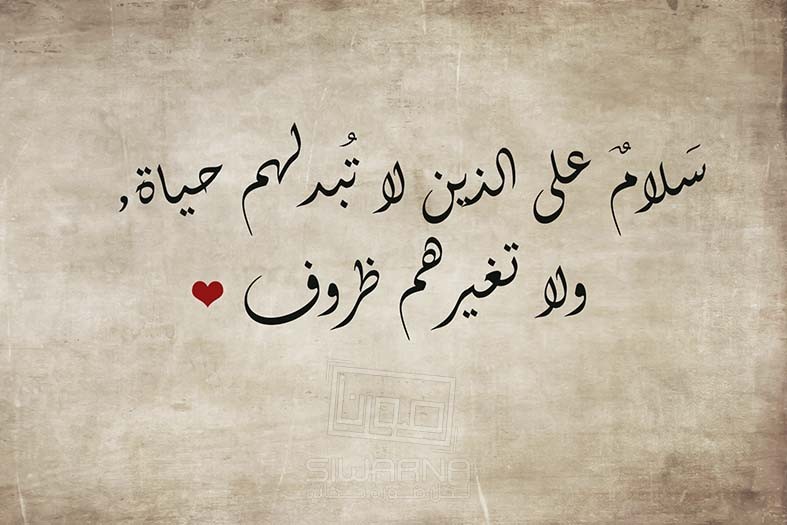 سَلامٌ على الذين لا تُبدلهم حياة,
ولا تغيرهم ظروف ❤
صورنا
SIWARNA